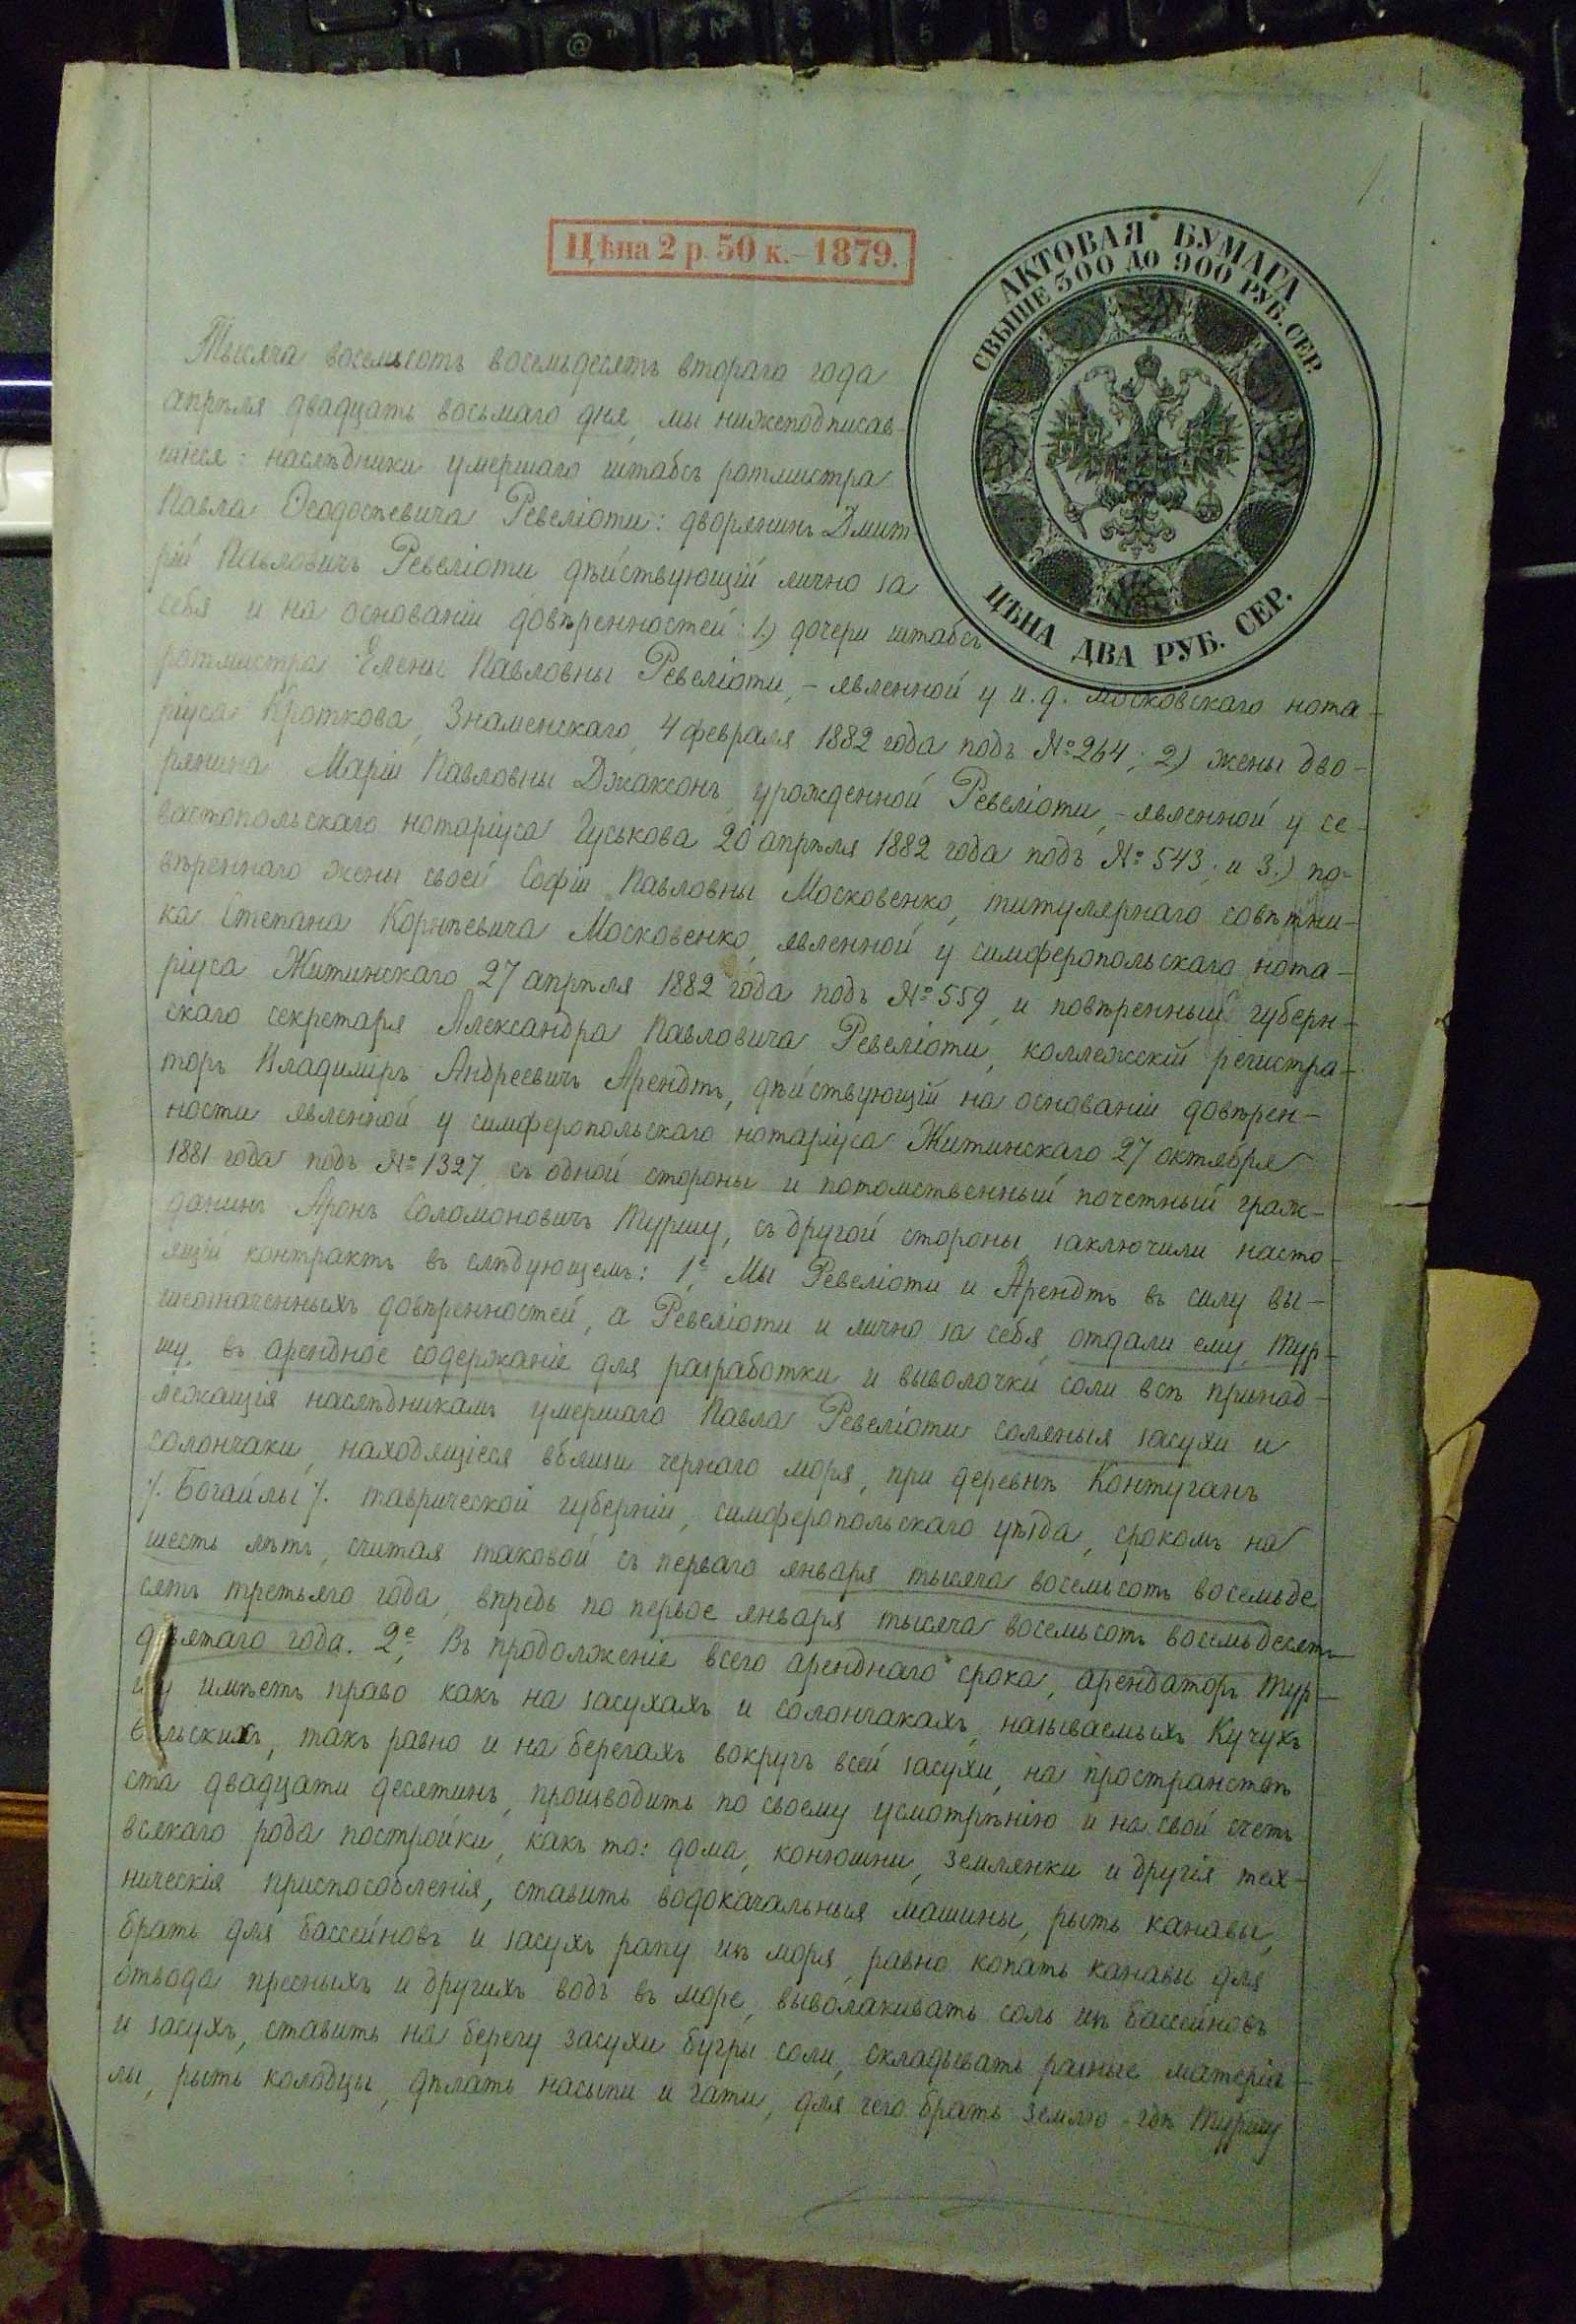 Цѣна 2 р. 50 к. – 1879.
АКТОВАЯ БУМАГА
СВЫШЕ 300 ДО 900 РУБ. СЕР.
ЦѢНА ДВА РУБ. СЕР.
Тысяча восемьсотъ восемьдесятъ втораго года
апрѣля двадцать восьмаго дня, мы нижеподписав-
шiеся: наслѣдники умершаго штабсъ ротмистра
Павла Ѳеодосiевича Ревелiоти: дворянинъ Дмит
рiй Павловичъ Ревелiоти дѣйствующiй лично за
себя и на основанiи довѣренностей: 1) дочери штабсъ
ротмистра Елены Павловны Ревелiоти, – явленной у и. д. московскаго нота-
рiуса Кроткова, Знаменскаго, 4 февраля 1882 года подъ № 264; 2) жены дво-
рянина Марiи Павловны Джаксонъ, урожденной Ревелiоти, – явленной у се-
вастопольскаго нотарiуса Гуськова 20 апрѣля 1882 года подъ № 543. и 3.) по-
вѣреннаго жены своей Софiи Павловны Московенко, титулярнаго совѣтни-
ка Степана Корнѣевича Московенко, явленной у симферопольскаго нота-
рiуса Житинскаго 27 апрѣля 1882 года подъ № 559, и повѣренный губерн-
скаго секретаря Александра Павловича Ревелiоти, коллежскiй регистра-
торъ Владимiръ Андреевичъ Арендтъ, дѣйствующiй на основанiи довѣрен-
ности явленной у симферопольскаго нотарiуса Житинскаго 27 октября
1881 года подъ № 1327, съ одной стороны и потомственный почетный граж-
данинъ Аронъ Соломоновичъ Туршу, съ другой стороны, заключили насто-
ящiй контрактъ въ слѣдующемъ: 1е, Мы Ревелiоти и Арендтъ въ силу вы-
шеозначенныхъ довѣренностей, а Ревелiоти и лично за себя, отдали ему, Тур-
шу, въ арендное содержанiе для разработки и выволочки соли всѣ принад-
лежащiя наслѣдникамъ умершаго Павла Ревелiоти соляныя засухи и
солончаки, находящiеся вблизи чернаго моря, при деревнѣ Контуганъ
/. Богайлы /. таврической губернiи, симферопольскаго уѣзда, срокомъ на
шесть лѣтъ, считая таковой съ перваго января тысяча восемьсотъ восемьде
сятъ третьяго года, впредь по первое января тысяча восемьсотъ восемьдесятъ
девятаго года. 2е, Въ продолженiе всего аренднаго срока, арендаторъ Тур-
шу имѣетъ право какъ на засухахъ и солончакахъ, называемыхъ Кучукъ
бельскихъ, такъ равно и на берегахъ вокругъ всей засухи, на пространствѣ
ста двадцати десятинъ, производить по своему усмотрѣнiю и на свой счетъ
всякаго рода постройки, какъ то: дома, конюшни, землянки и другiя тех-
ническiя приспособленiя, ставить водокачальныя машины, рыть канавы,
брать для бассейновъ и засухъ рапу изъ моря, равно копать канавы для
отвода пресныхъ и другихъ водъ въ море, выволакивать соль изъ бассейновъ
и засухъ, ставить на берегу засухи бугры соли, складывать разные матерiа-
лы, рыть колодцы, дѣлать насыпи и гати, для чего брать землю гдѣ Туршу